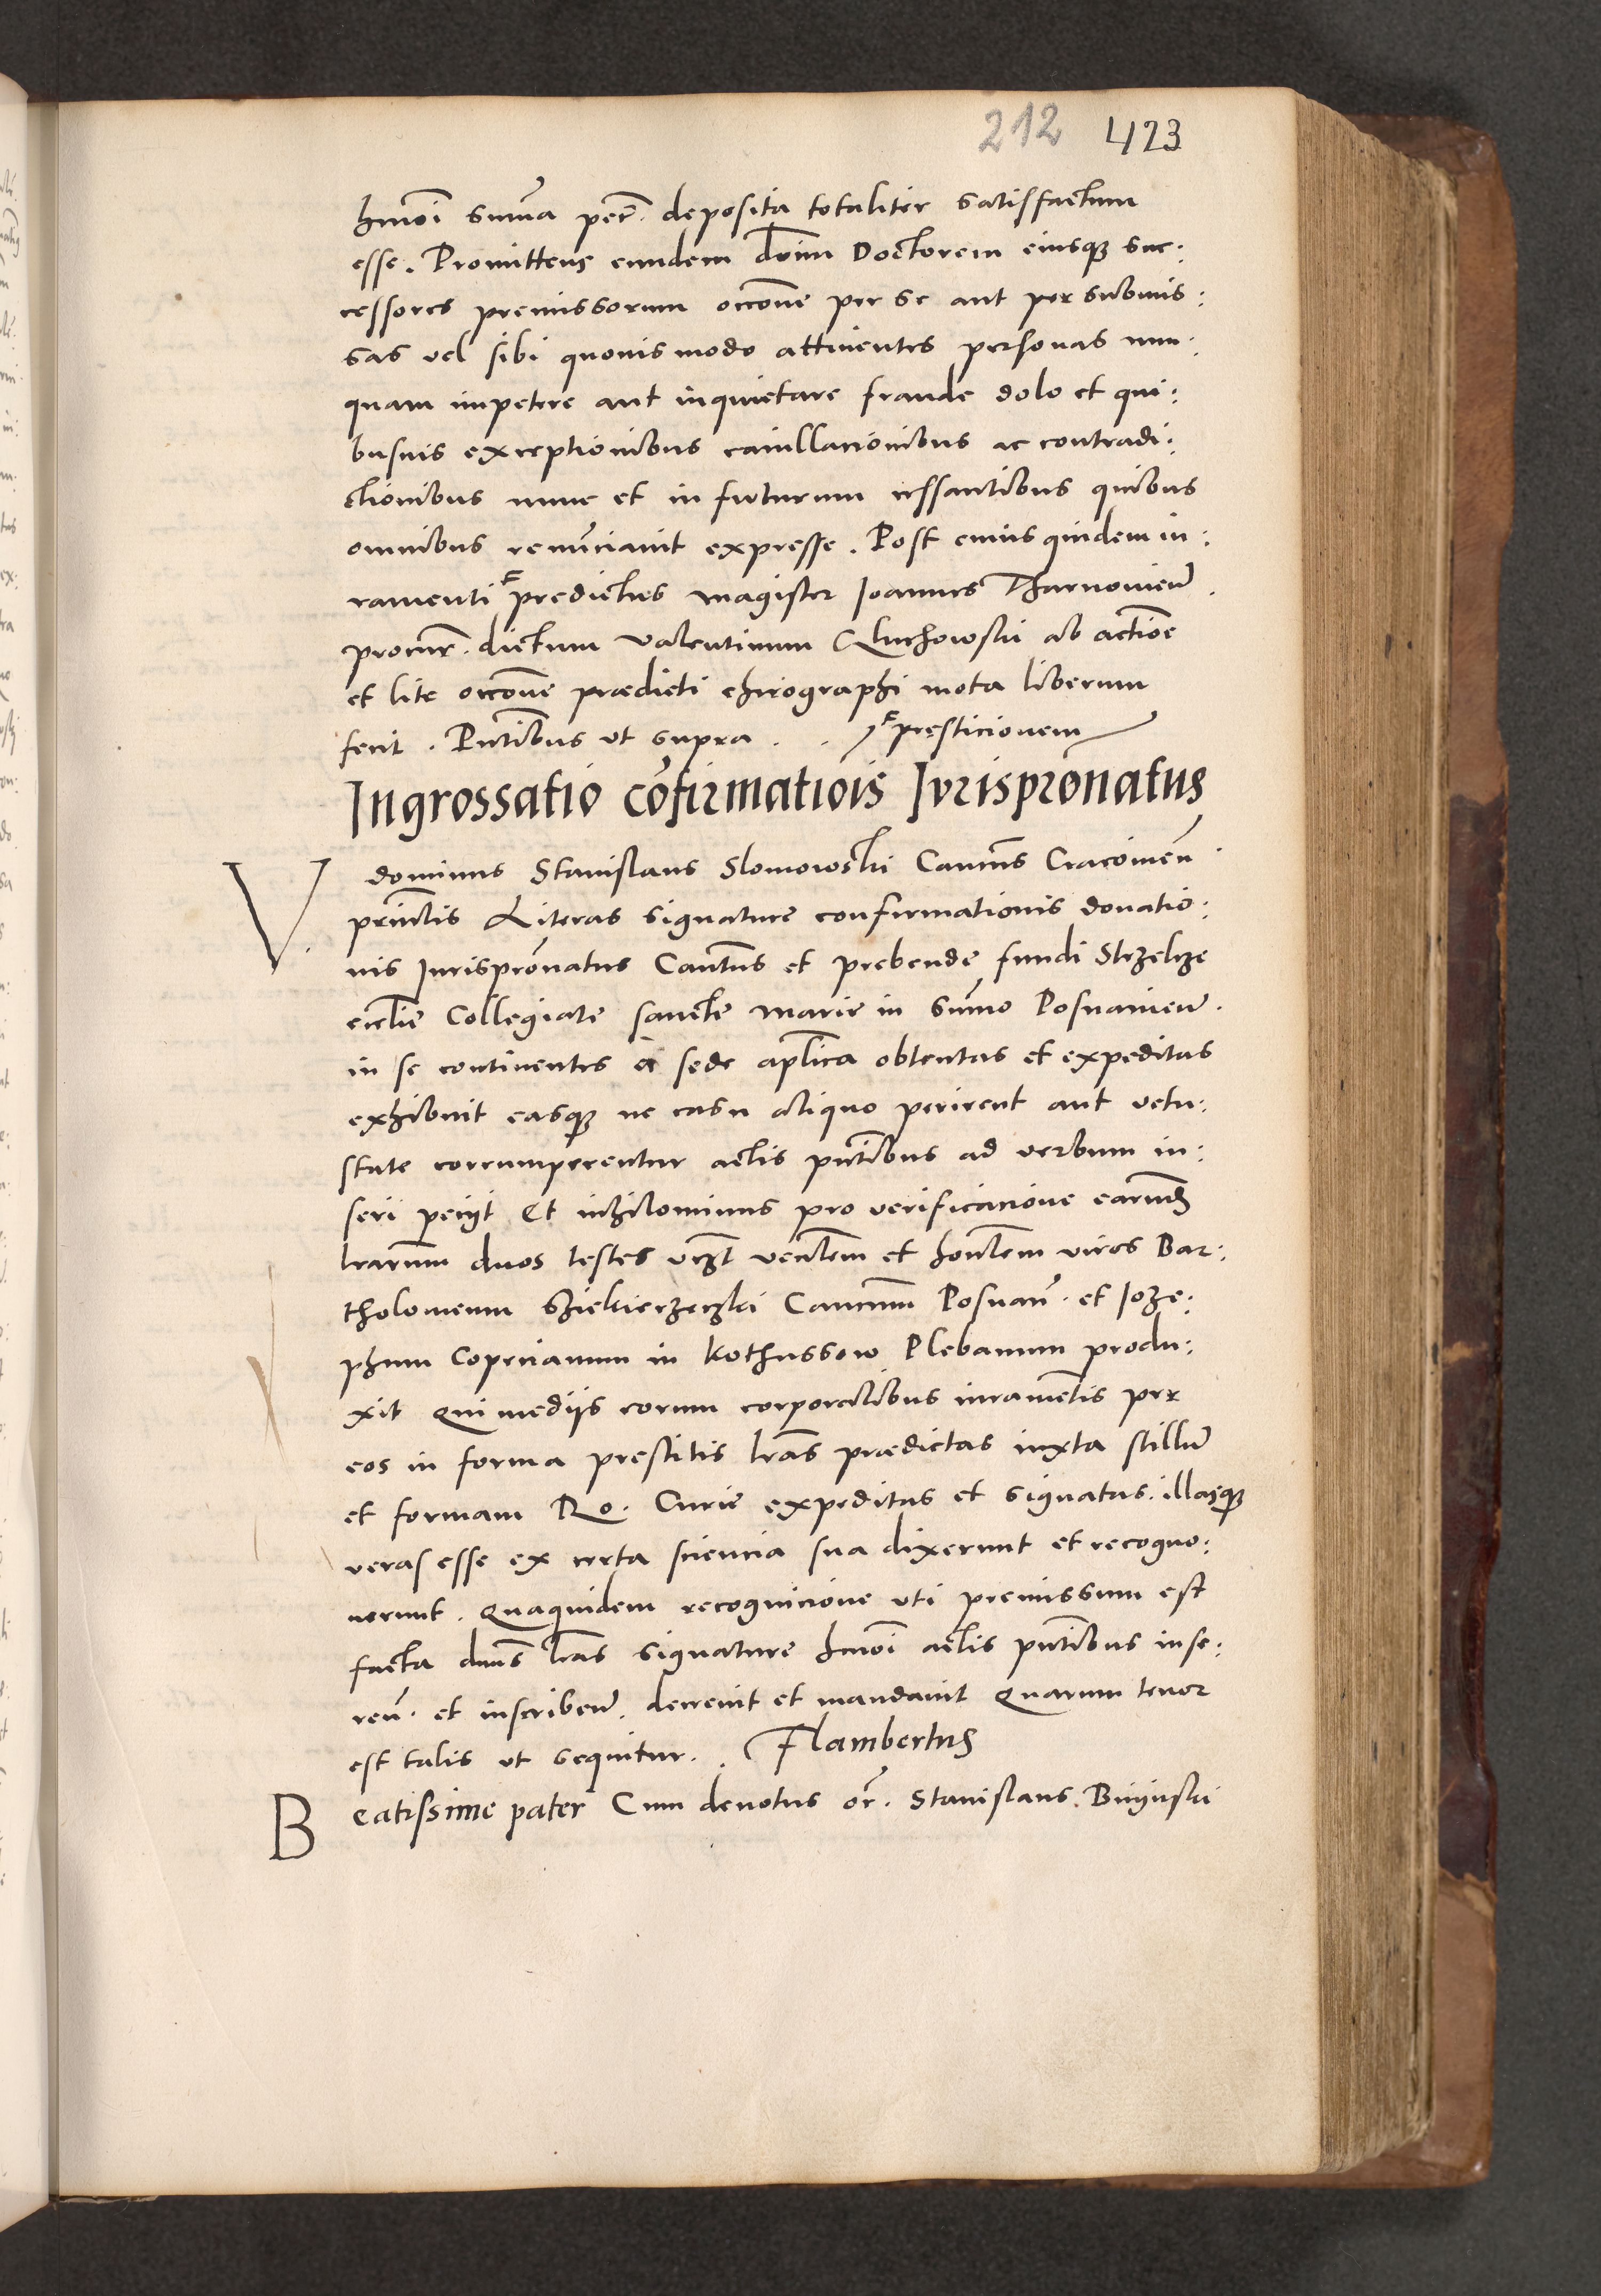 212 423
hmōi sum̄a per̄. deposita totaliter satisffactum
esse. Promittens eundem dn̄m Doctorem eiusqꝫ suc:
cessores premissorum occōne per se aut per submis:
sas vel sibi quouis modo attinentes personas nun:
quam impetere aut inquietare fraude dolo et qui:
busuis exceptionibus cauillacionibus ac contradi:
ctionibus nunc et in futurum cessantibus quibus
omnibus renun̄ciauit expresse. Post cuius quidem iu:
ramenti ꟻ predictus magister Joannes Tharnouien̄.
procur̄. dictum Valentinum Gluchowski ab actiōe
et lite occōne prædicti chirographi mota liberum
fecit. Pn̄tibus ut supra . . ꟻ pręsticionem
Ingrossatio cōfirmatiōis Jurisprōnatus
V. dominus Stanislaus Slomowski Canc̄us Cracouien̄.
prīnc̄lis Literas signature confirmationis donatio:
nis Jurisprōnatus Can̄tus et prebende fundi Strzelcze
eccl̄ie Collegiate sancte Marie in Sum̄o Posnanien̄.
in se continentes à sede apl̄ica obtentas et expeditas
exhibuit easqꝫ ne casu aliquo perirent aut vetu:
state corrumperentur actis pn̄tibus ad verbum in:
seri petijt Et nihilominus pro verificacione earund̄
lr̄arum duos testes vꝫt ven̄lem et hon̄lem viros Bar:
tholomeum Sziekierzeczki Canc̄um Posnan̄. et Joze:
phum Copeciamum in Kothussow Plebanum produ:
xit Qui mediis eorum corporalibus iuramen̄tis per
eos in forma prestitis lr̄as prædictas iuxta stillum̄
et formam Ro. Curie expeditas et signatas. illasqꝫ
veras esse ex certa sciencia sua dixerunt et recogno:
uerunt. Quaquidem recognicione uti premissum est
facta dn̄us lr̄as signature hmōi actis pn̄tibus inse:
ren̄. et inscriben̄. decreuit et mandauit Quarum tenor
est talis ut sequitur. . Flambertus
Beatissime pater Cum deuotus or̄. Stanislaus. Buyuski